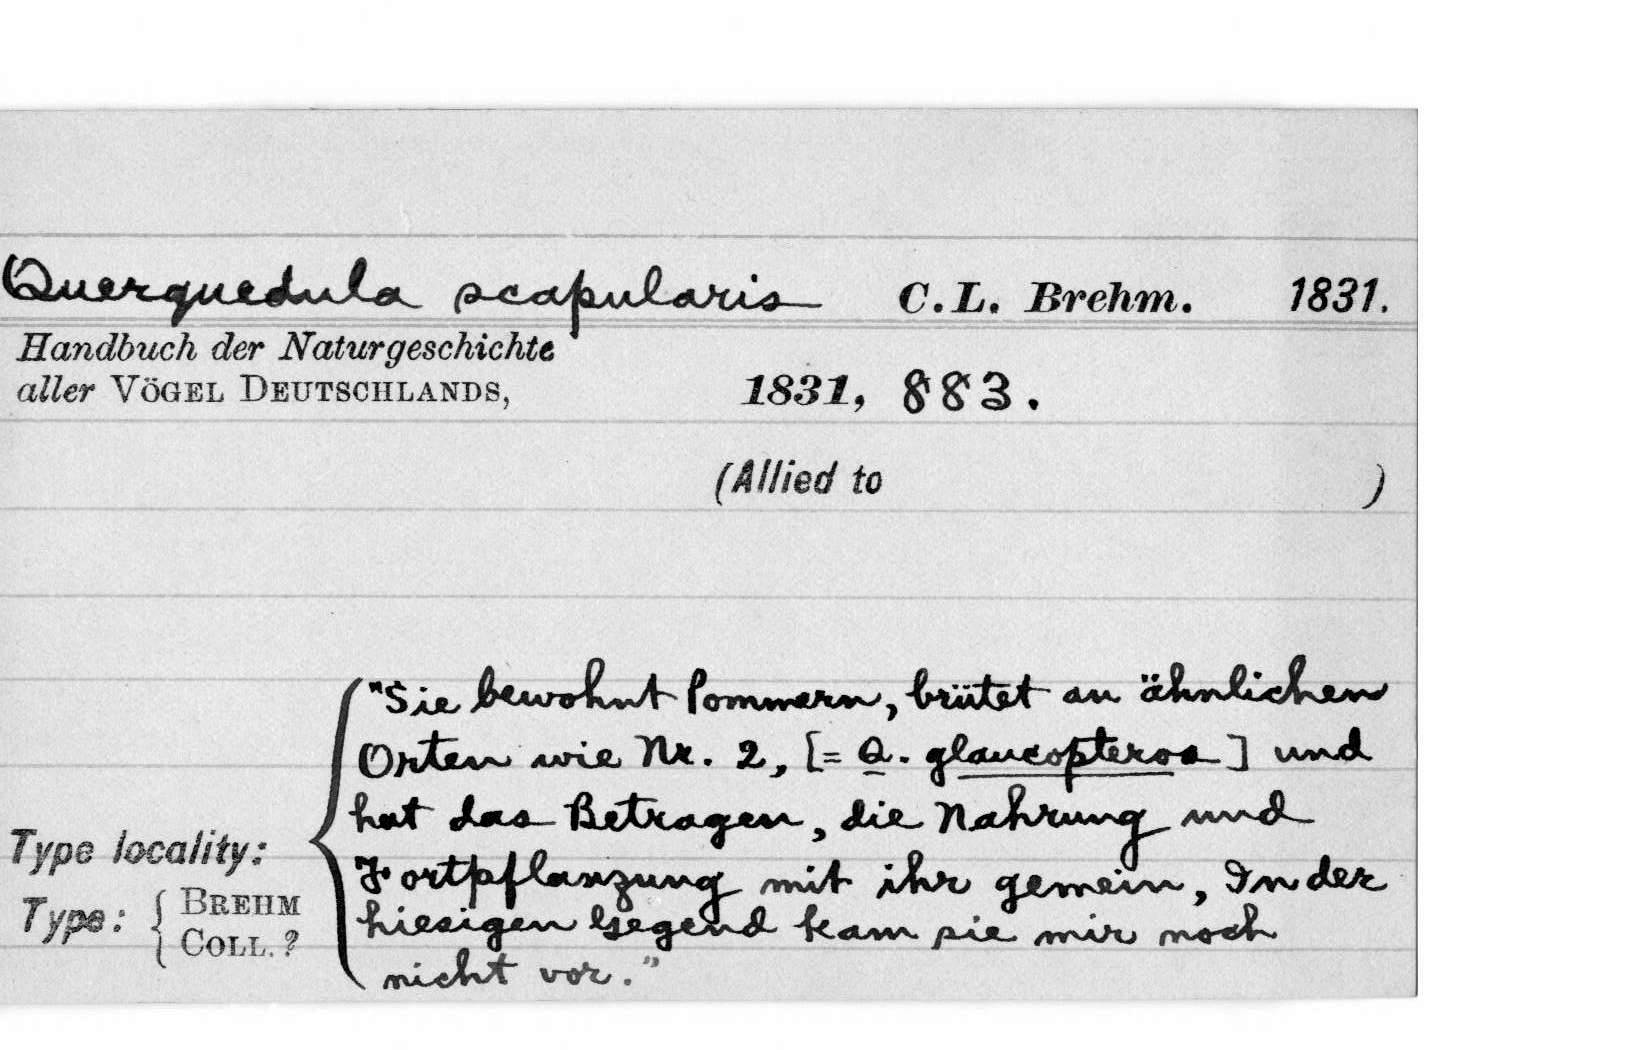 Querquedula scapularis C.L. Brehm. 1831.
Handbuch der Naturgeschichte
aller VÖGEL DEUTSCHLANDS, 1831, 883.
(Allied to )
"Sie bewohnt Pommern, brütet an ähnlichen
Orten wie Nr. 2, [= Q. glaucopteros] und
hat das Betragen, die Nahrung und
Type locality:
Fortpflanzung mit ihr gemein, In der
Type: { BREHM COLL. ?
hiesigen Gegend kam sie mir noch
nicht vor."